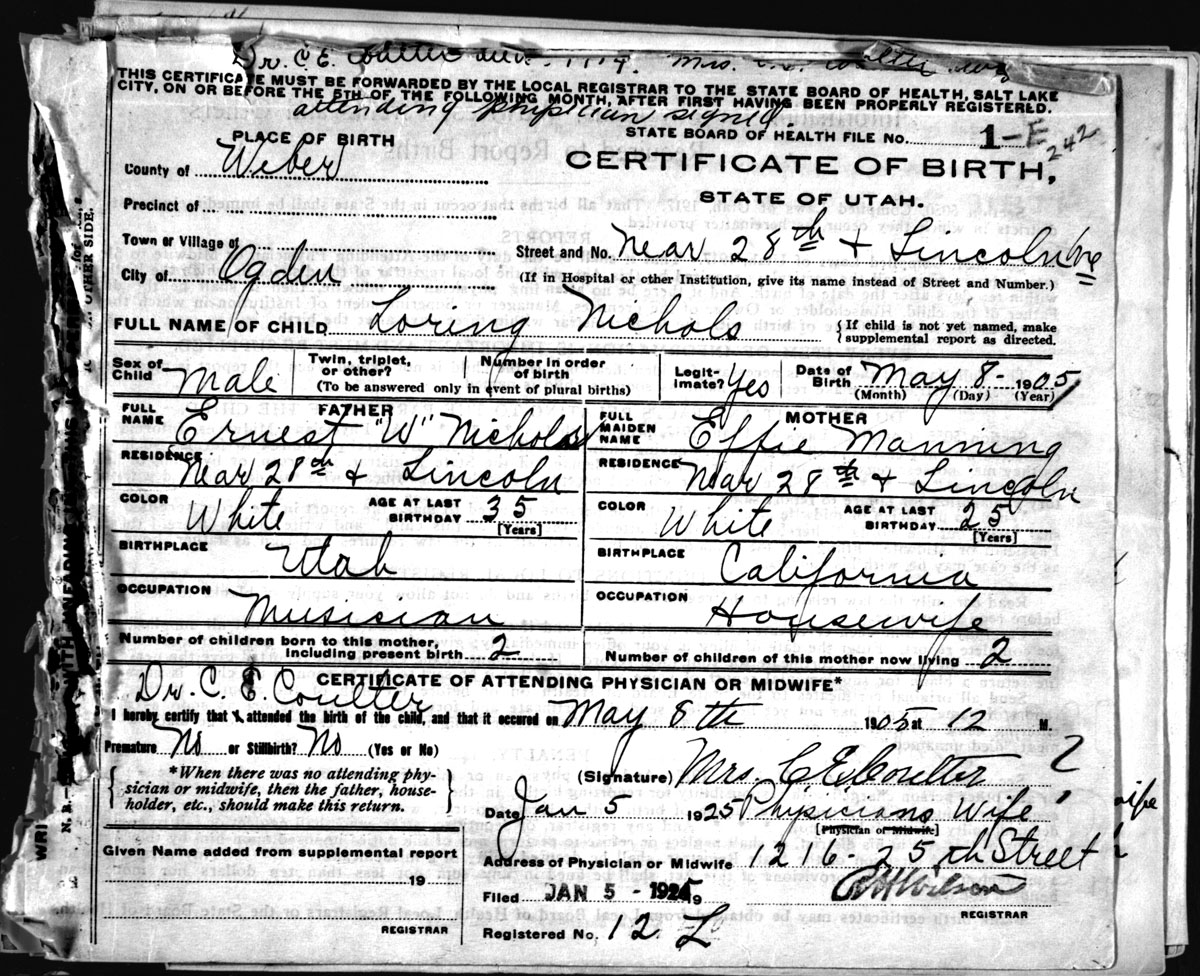 Dr. C. E. Coulter Mrs. Coulter
THIS CERTIFICATE MUST BE FORWARDED BY THE LOCAL REGISTRAR TO THE STATE BOARD OF HEALTH, SALT LAKE
CITY, ON OR BEFORE THE 5TH OF THE FOLLOWING MONTH, AFTER FIRST HAVING BEEN PROPERLY REGISTERED.
attending physician signed.
STATE BOARD OF HEALTH FILE No. 1-E 242
PLACE OF BIRTH
CERTIFICATE OF BIRTH,
County of Weber
STATE OF UTAH.
Precinct of
Town or Village of
Street and No. Near 28th + Lincoln Ave
City of Ogden
(If in Hospital or other Institution, give its name instead of Street and Number.)
FULL NAME OF CHILD Loring Nichols { If child is not yet named, make
supplemental report as directed.
Sex of Child Male Twin, triplet, or other? Number in order of birth Legit-imate? Yes Date of Birth May 8- 1905
(To be answered only in event of plural births) (Month) (Day) (Year)
FATHER
FULL NAME Ernest "W" Nichols
RESIDENCE Near 28th & Lincoln
COLOR White AGE AT LAST BIRTHDAY 35 [Years]
BIRTHPLACE Utah
OCCUPATION Musician
MOTHER
FULL MAIDEN NAME Effie Manning
RESIDENCE Near 28th & Lincoln
COLOR White AGE AT LAST BIRTHDAY 25 [Years]
BIRTHPLACE California
OCCUPATION Housewife
Number of children born to this mother, including present birth 2
Number of children of this mother now living 2
CERTIFICATE OF ATTENDING PHYSICIAN OR MIDWIFE*
Dr. C. E. Coulter
I hereby certify that I attended the birth of the child, and that it occured on May 8th 1905 at 12 M.
Premature No or Stillbirth? No (Yes or No)
*When there was no attending phy-
sician or midwife, then the father, house-
holder, etc., should make this return.
(Signature) Mrs. C E Coulter
Date Jan 5 1925 Physicians Wife
[Physician or Midwife]
Address of Physician or Midwife 1216-25th Street
Given Name added from supplemental report
19
REGISTRAR
Filed JAN 5 - 1925
REGISTRAR
Registered No. 12 L